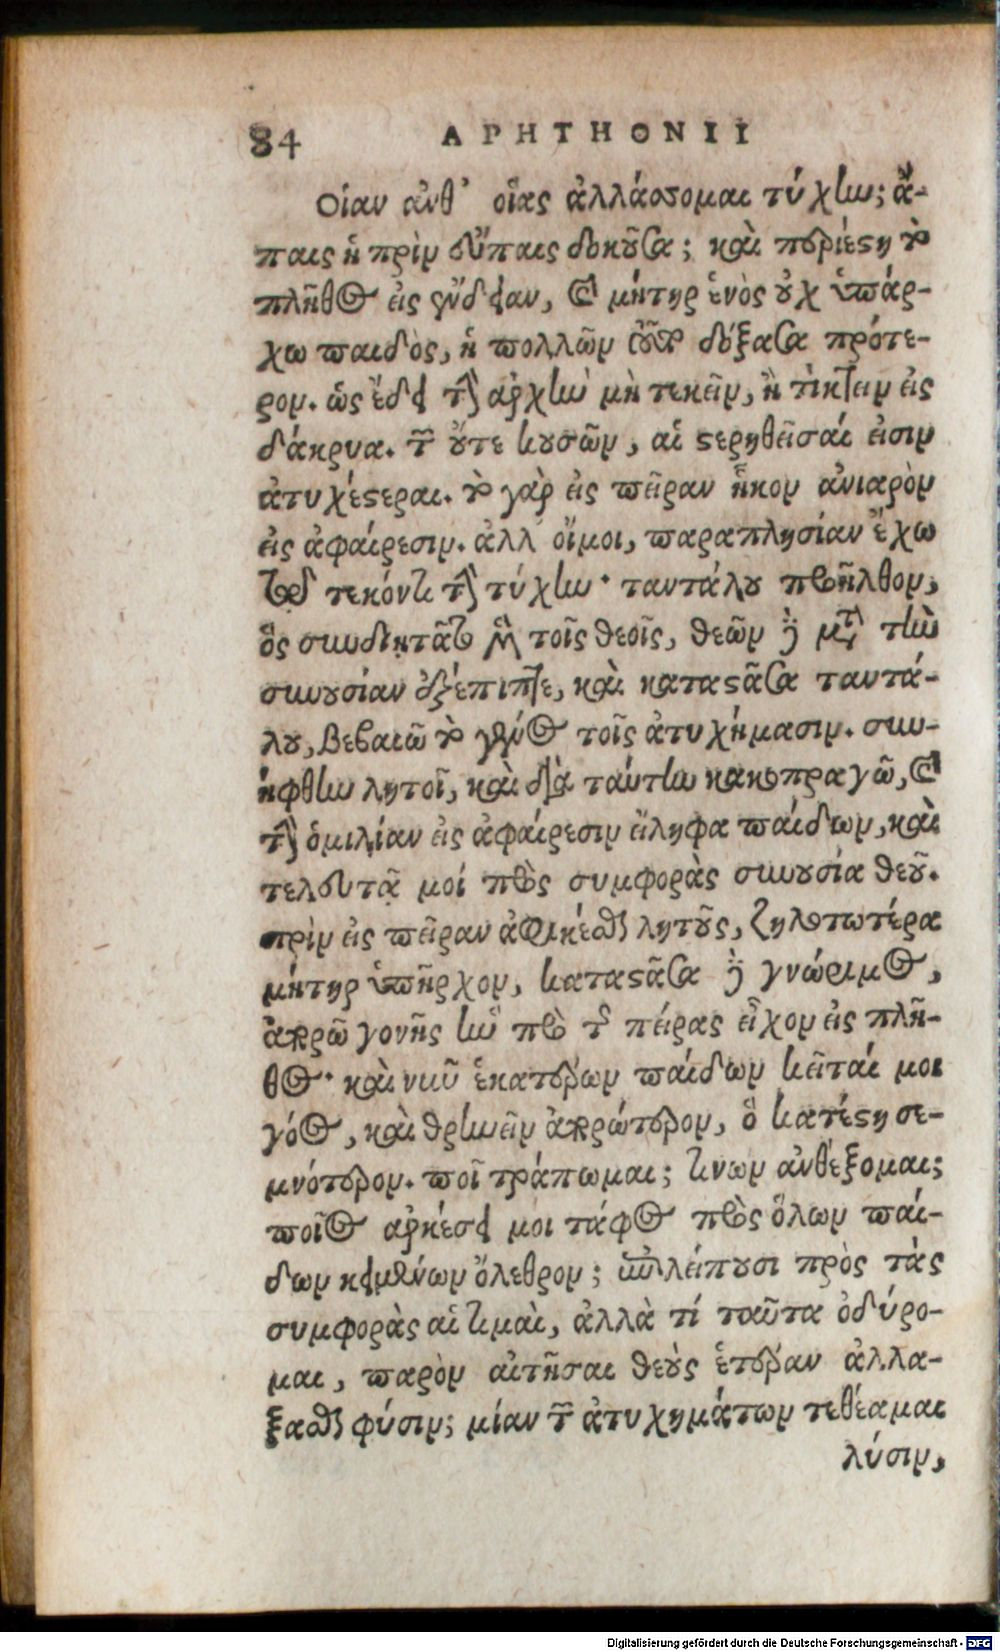 84 APHTHONII
Οἵαν ἀνθ’ οἵας ἀλλάσσομαι τύχην; ἄ-
παις ἡ πρὶν εὔπαις δοκοῦσα; καὶ περιέστη τὸ
πλῆθος εἰς ἔνδειαν, καὶ μήτηρ ἑνὸς οὐχ ὑπάρ-
χω παιδὸς, ἡ πολλῶν τοῦτο δόξασα πρότε-
ρον. ὡς ἔδει τὴν ἀρχὴν μὴ τεκεῖν, ἢ τίκτειν εἰς
δάκρυα. τῶν οὔτε κυσῶν, αἱ στερηθεῖσαί εἰσιν
ἀτυχέστεραι. τὸ γὰρ εἰς πεῖραν ἧκον ἀνιαρὸν
εἰς ἀφαίρεσιν. ἀλλ’ οἴμοι, παραπλησίαν ἔχω
τῷ τεκόντι τὴν τύχην· ταντάλου προῆλθον,
ὃς συνδιῃτᾶτο μὲν τοῖς θεοῖς, θεῶν δὲ μετὰ τὴν
συνουσίαν ἐξέπιπτε, καὶ καταστᾶσα ταντά-
λου, βεβαιῶ τὸ γένος τοῖς ἀτυχήμασιν. συν-
ήφθην λητοῖ, καὶ διὰ ταύτην κακοπραγῶ, καὶ
τὴν ὁμιλίαν εἰς ἀφαίρεσιν εἴληφα παίδων, καὶ
τελευτᾷ μοί πρὸς συμφορὰς συνουσία θεοῦ.
πρὶν εἰς πεῖραν ἀφικέσθαι λητοῦς, ζηλοτωτέρα
μήτηρ ὑπῆρχον, καταστᾶσα δὲ γνώριμος,
ἀπορῶ γονῆς ἣν πρὸ τῆς πείρας εἶχον εἰς πλῆ-
θος· καὶ νῦν ἑκατέρων παίδων κεῖταί μοι
γόος, καὶ θρηνεῖν ἀπορώτερον, ὃ κατέστη σε-
μνότερον. ποῖ τράπωμαι; τίνων ἀνθέξομαι;
ποῖος ἀρκέσει μοι τάφος πρὸς ὅλων παί-
δων κειμένων ὄλεθρον; ἐπιλείπουσι πρὸς τὰς
συμφορὰς αἱ τιμαὶ, ἀλλὰ τί ταῦτα ὀδύρο-
μαι, παρὸν αἰτῆσαι θεοὺς ἑτέραν ἀλλά-
ξασθαι φύσιν; μίαν τῶν ἀτυχημάτων τεθέαμαι
λύσιν,
Digitalisierung gefördert durch die Deutsche Forschungsgemeinschaft - DFG